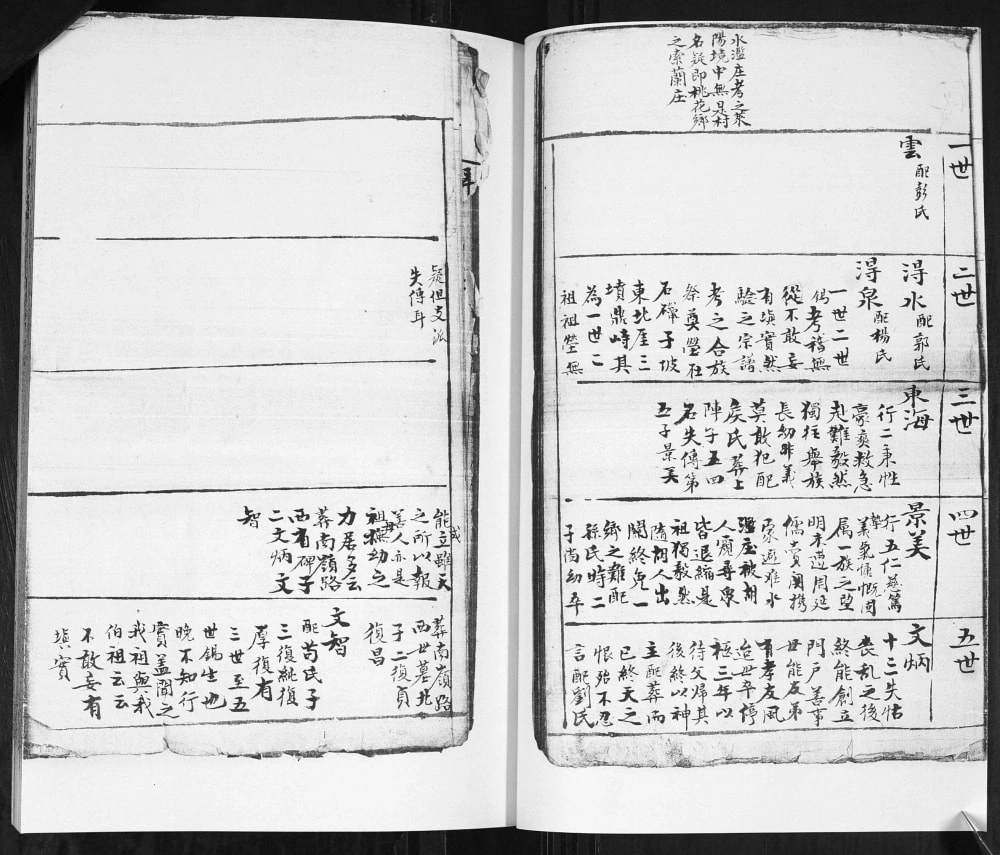 水濫庄考之萊
陽境中無是村
名疑即桃花鄉
之索蘭庄
一世
雲配彭氏
二世
淂水配郭氏
淂泉配楊氏
一世二世
偶考稽無
從不敢妄
有填實然
驗之宗譜
考之合族
祭奠塋在
石礶子坡
東北厓三
墳鼎峙其
為一世二
祖祖塋無
疑但支派
失傳耳
三世
東海
行二秉性
豪爽救急
赴難毅然
獨往舉族
長幼非義
莫敢犯配
矦氏葬上
陣子五四
名失傳第
五子景美
四世
景美
行五仁慈篤
義氣慷慨闔
属一族之望
明末遭周延
儒賣闔携
家避难水
濫庄被胡
人質尋衆
皆退縮是
祖獨毅然
隨胡人出
閧終免一
齊之難配
孫氏時二
子尚幼卒
能成立雖天
之所以報
善人亦是
祖母撫幼之
力居多云
葬南嶺路
西有碑子
二文炳文
智
五世
文炳
十二失怙
丧乱之後
終能創立
門戶善事
母能友弟
有孝友風
迨母卒停
柩三年以
待父歸其
後終以神
主配葬而
已終天之
恨殆不忍
言配劉氏
葬南嶺路
西世墓北
子二復貟
復昌
文智
配苟氏子
三復純復
厚復有
三世至五
世錫生也
晚不知行
實蓋聞之
我祖與我
伯祖云云
不敢妄有
填實